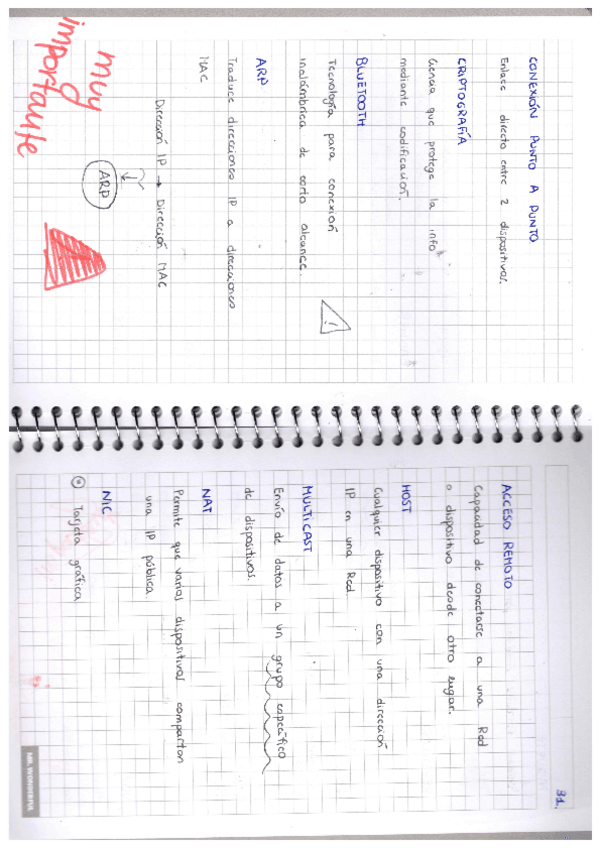 CONEXIÓN PUNTO A PUNTO
Enlace directo entre 2 dispositivos.
CRIPTOGRAFÍA
Ciencia que protege la info
mediante codificación.
BLUETOOTH
Tecnología para conexión
inalámbrica de corto alcance.
!
ARP
Traduce direcciones IP a direcciones
MAC
Dirección IP → Dirección MAC
ARP
muy
importante
31.
ACCESO REMOTO
Capacidad de conectarse a una Red
o dispositivo desde otro lugar.
HOST
Cualquier dispositivo con una dirección
IP en una Red
MULTICAST
Envío de datos a un grupo específico
de dispositivos.
NAT
Permite que varios dispositivos compartan
una IP pública.
NIC
* Tarjeta gráfica
MR. WONDERFUL